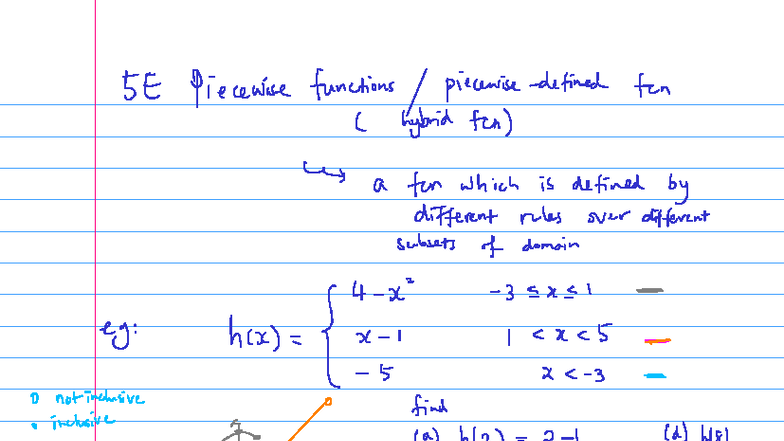 5E Piecewise functions / piecewise-defined fcn
( hybrid fcn)
a fcn which is defined by
different rules over different
subsets of domain
4 - x² -3 ≤ x ≤ 1
eg: h(x) = { x - 1 1 < x < 5
- 5 x < -3
not inclusive
inclusive
find
(a) h(2) = 2-1 (d) h(8)